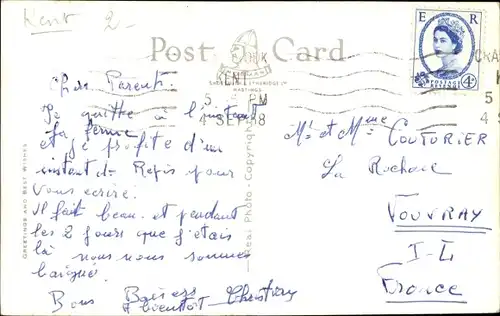 Kent 2-
Post Card
E R
POSTAGE REVENUE
4D
KENT
HASTINGS
5 PM
4 SEP 58
Chers Parents
Je quitte à l'instant
la ferme
et je profite d'un
instant de Repis pour
vous écrire.
Il fait beau et pendant
les 2 jours que j'étais
là nous nous sommes
baigné.
Bons Baisers
à bientôt Christian
GREETINGS AND BEST WISHES
Real Photo - Copyright
Mr et Mme COUTURIER
La Rochere
VOUVRAY
I-L
France